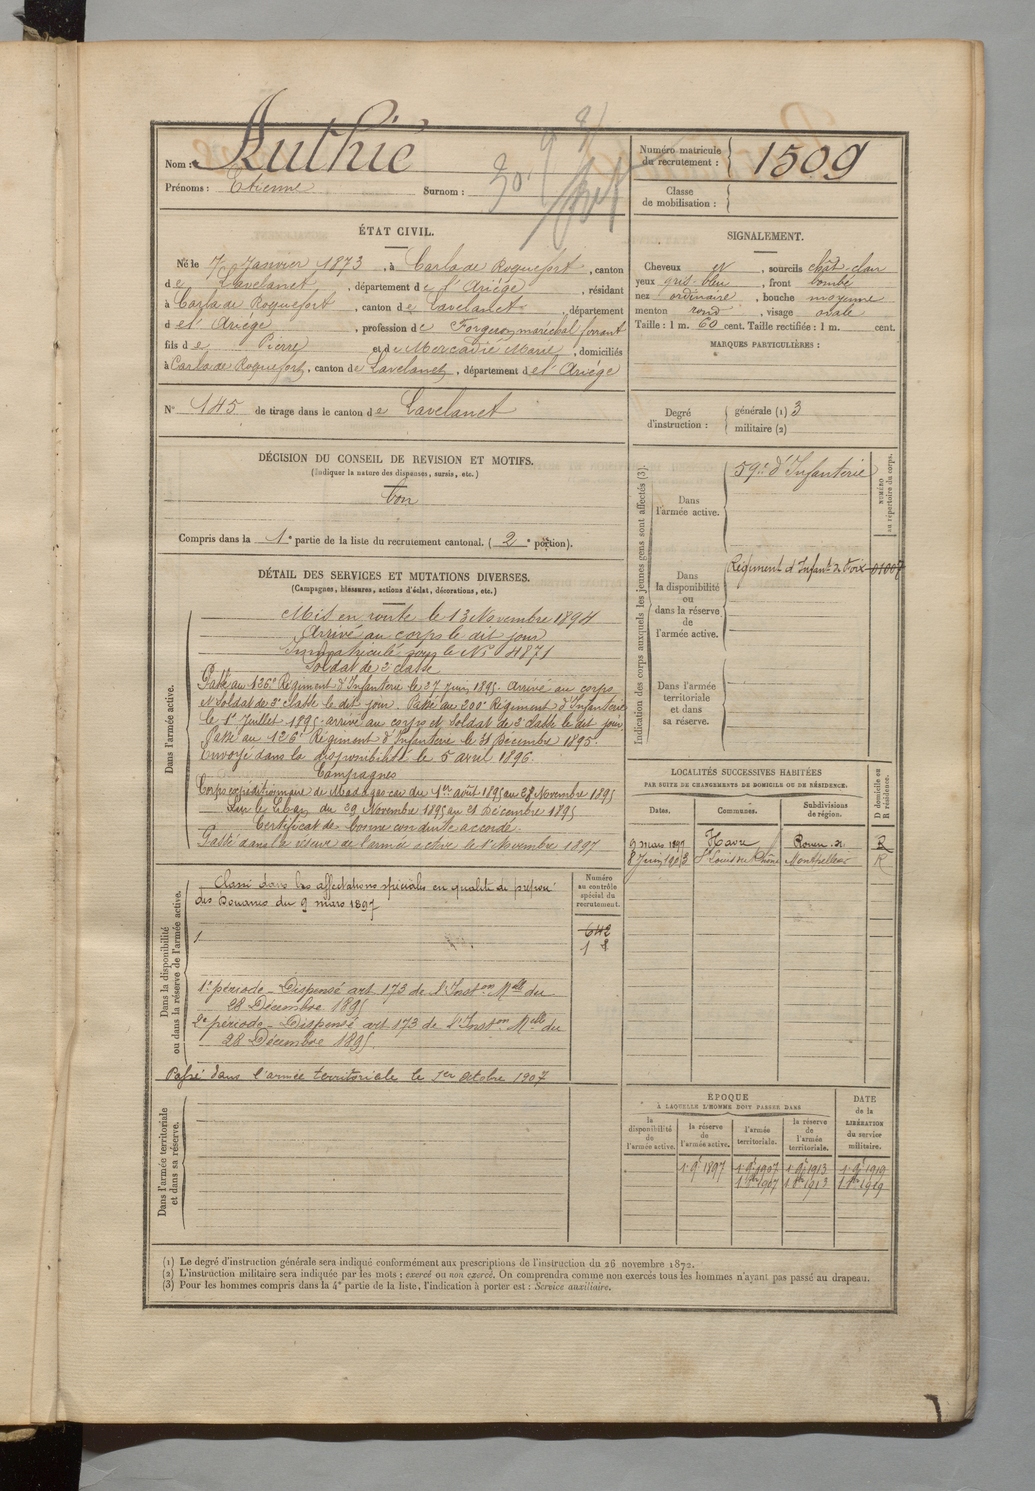 Nom : Authié
Prénoms : Etienne Surnom :
Numéro matricule
du recrutement : 1509
Classe
de mobilisation :
ÉTAT CIVIL.
Né le 7 Janvier 1873, à Carla de Roquefort, canton
de Lavelanet, département de l'Ariège, résidant
à Carla de Roquefort, canton de Lavelanet, département
d el' Ariége, profession de Forgeron maréchal ferrant
fils de Pierre et de Mercadié Marie, domiciliés
à Carla de Roquefort, canton de Lavelanet, département de l'Ariége
N° 145 de tirage dans le canton de Lavelanet
SIGNALEMENT.
Cheveux et, sourcils chât-clair
yeux gris-bleu, front bombé
nez ordinaire, bouche moyenne
menton rond, visage ovale
Taille : 1 m. 60 cent. Taille rectifiée : 1 m. cent.
MARQUES PARTICULIÈRES :
Degré
d'instruction :
générale (1) 3
militaire (2)
DÉCISION DU CONSEIL DE REVISION ET MOTIFS.
(Indiquer la nature des dispenses, sursis, etc.)
bon
Compris dans la 1e partie de la liste du recrutement cantonal. (2e portion).
DÉTAIL DES SERVICES ET MUTATIONS DIVERSES.
(Campagnes, blessures, actions d'éclat, décorations, etc.)
Dans l'armée active.
Mis en route le 13 Novembre 1894
Arrivé au corps le dit jour
Immatriculé sous le N° 4871
Soldat de 2e classe
Passé au 126e Régiment d'Infanterie le 27 Juin 1895. Arrivé au corps
et Soldat de 2e classe le dit jour. Passé au 200e Régiment d'Infanterie
le 1er Juillet 1895. arrivé au corps et Soldat de 2e classe le dit jour.
Passé au 126e Régiment d'Infanterie le 31 Décembre 1895.
Envoyé dans la disponibilité le 5 avril 1896.
Campagnes
Corps expéditionnaire de Madagascar du 1er août 1895 au 28 Novembre 1895
du 29 Novembre 1895 au 21 Décembre 1895
Certificat de bonne conduite accordé.
Passé dans la réserve de l'armée active le 1er Novembre 1897
Indication des corps auxquels les jeunes gens sont affectés (3).
NUMÉRO
au répertoire du corps.
Dans
l'armée active.
59e d'Infanterie
Dans
la disponibilité
ou
dans la réserve
de
l'armée active.
Régiment d'Infant. de Foix 01007
Dans l'armée
territoriale
et dans
sa réserve.
LOCALITÉS SUCCESSIVES HABITÉES
PAR SUITE DE CHANGEMENTS DE DOMICILE OU DE RÉSIDENCE.
Dates. Communes. Subdivisions
de région. D domicile ou
R résidence.
9 mars 1897 Havre Rouen R
8 Juin 1903 St Louis du Rhône Montpellier R
Dans la disponibilité
ou dans la réserve de l'armée active.
Numéro
au contrôle
spécial du
recrutement.
Classé dans les affectations spéciales en qualité de préposé
des Douanes du 9 mars 1897
642
1 8
1e période - Dispensé art 173 de l'Inston Melle du
28 Décembre 1895
2e période - Dispensé art 173 de l'Inston Melle du
28 Décembre 1895.
Passé dans l'armée territoriale le 1er octobre 1907
Dans l'armée territoriale
et dans sa réserve.
ÉPOQUE
À LAQUELLE L'HOMME DOIT PASSER DANS
DATE
de la
LIBÉRATION
du service
militaire.
la
disponibilité
de
l'armée active.
la réserve
de
l'armée active.
l'armée
territoriale.
la réserve
de
l'armée
territoriale.
1 9e 1897 1 9e 1907 1 9e 1913 1 9e 1919
1 8bre 1907 1 8bre 1913 1 8bre 1919
(1) Le degré d'instruction générale sera indiqué conformément aux prescriptions de l'instruction du 26 novembre 1872.
(2) L'instruction militaire sera indiquée par les mots : exercé ou non exercé. On comprendra comme non exercés tous les hommes n'ayant pas passé au drapeau.
(3) Pour les hommes compris dans la 4e partie de la liste, l'indication à porter est : Service auxiliaire.